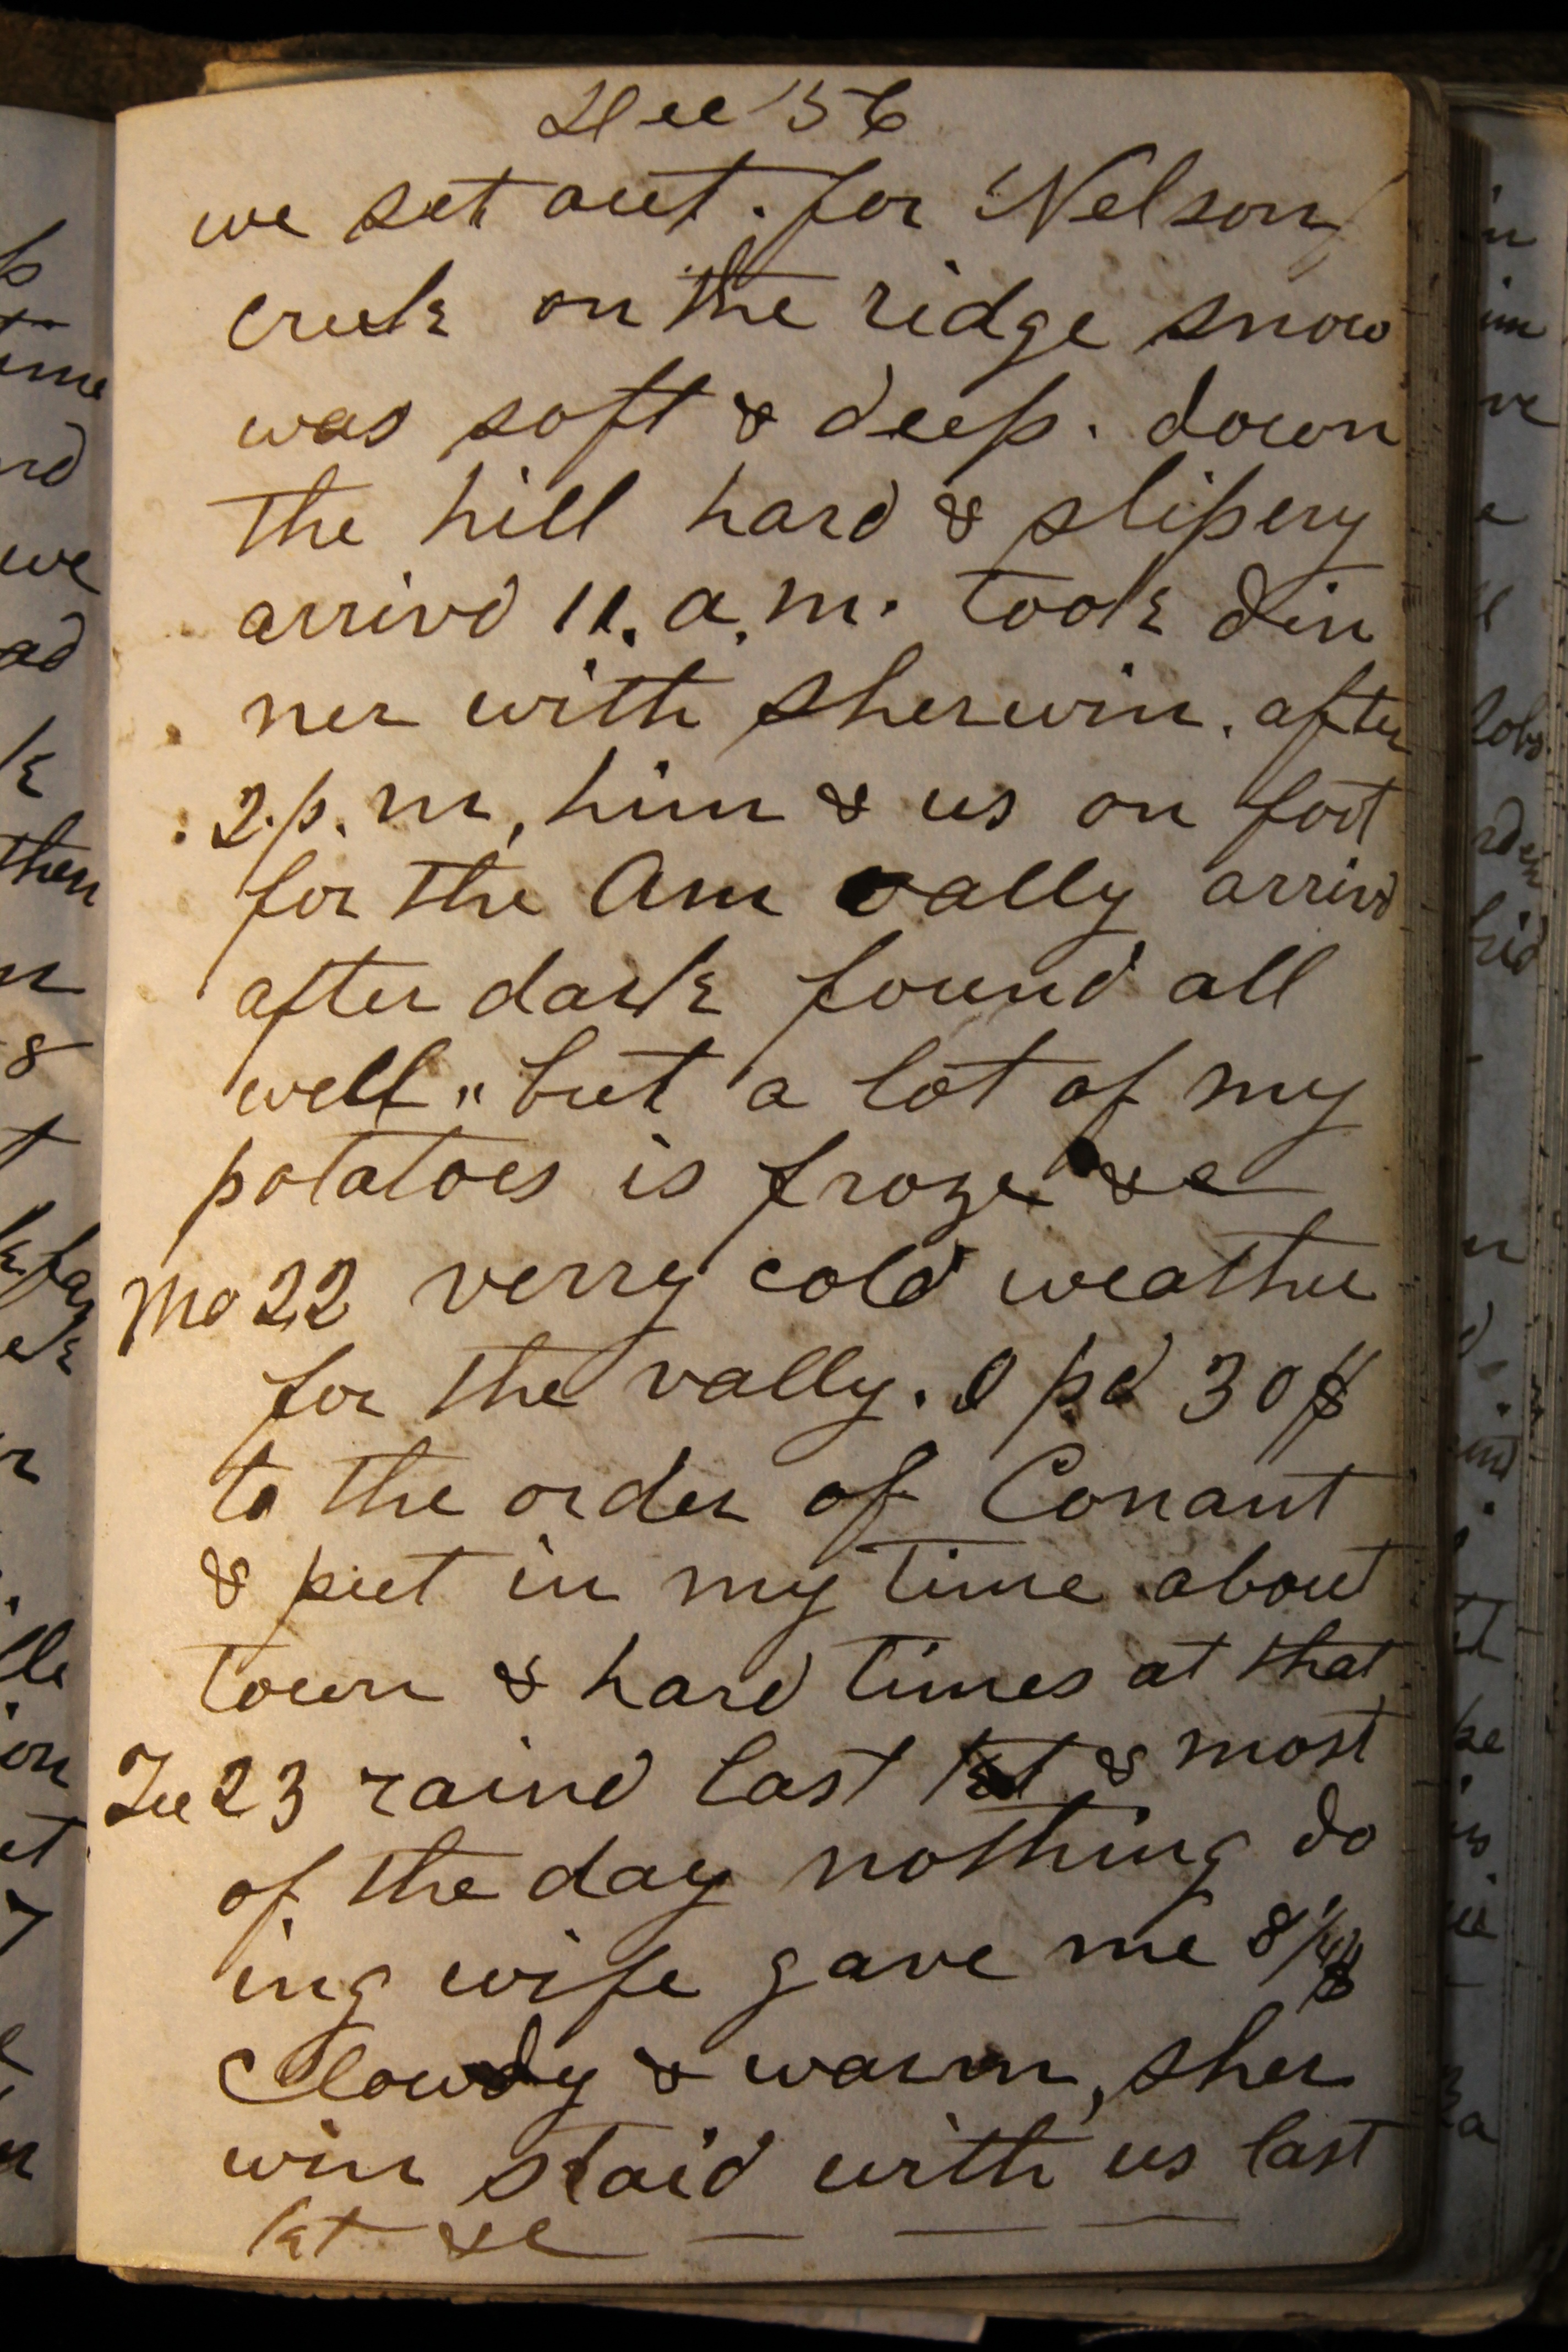 Dec '56
we set out. for Nelson
creek on the ridge snow
was soft & deep. down
the hill hard & slipery
arrivd 11. a. m. took din
ner with sherwin. after
2. p. m, him & us on foot
for the Am vally arrivd
after dark found all
well " but a lot of my
potatoes is froze &c
Mo 22 verry cold weather
for the vally. I pd 30 $
to the order of Conant
& put in my time about
town & hard times at that
Tue 23 raind last & most
of the day nothing do
ing wife gave me
Clowdy & warm, sher
win staid with us last
&c